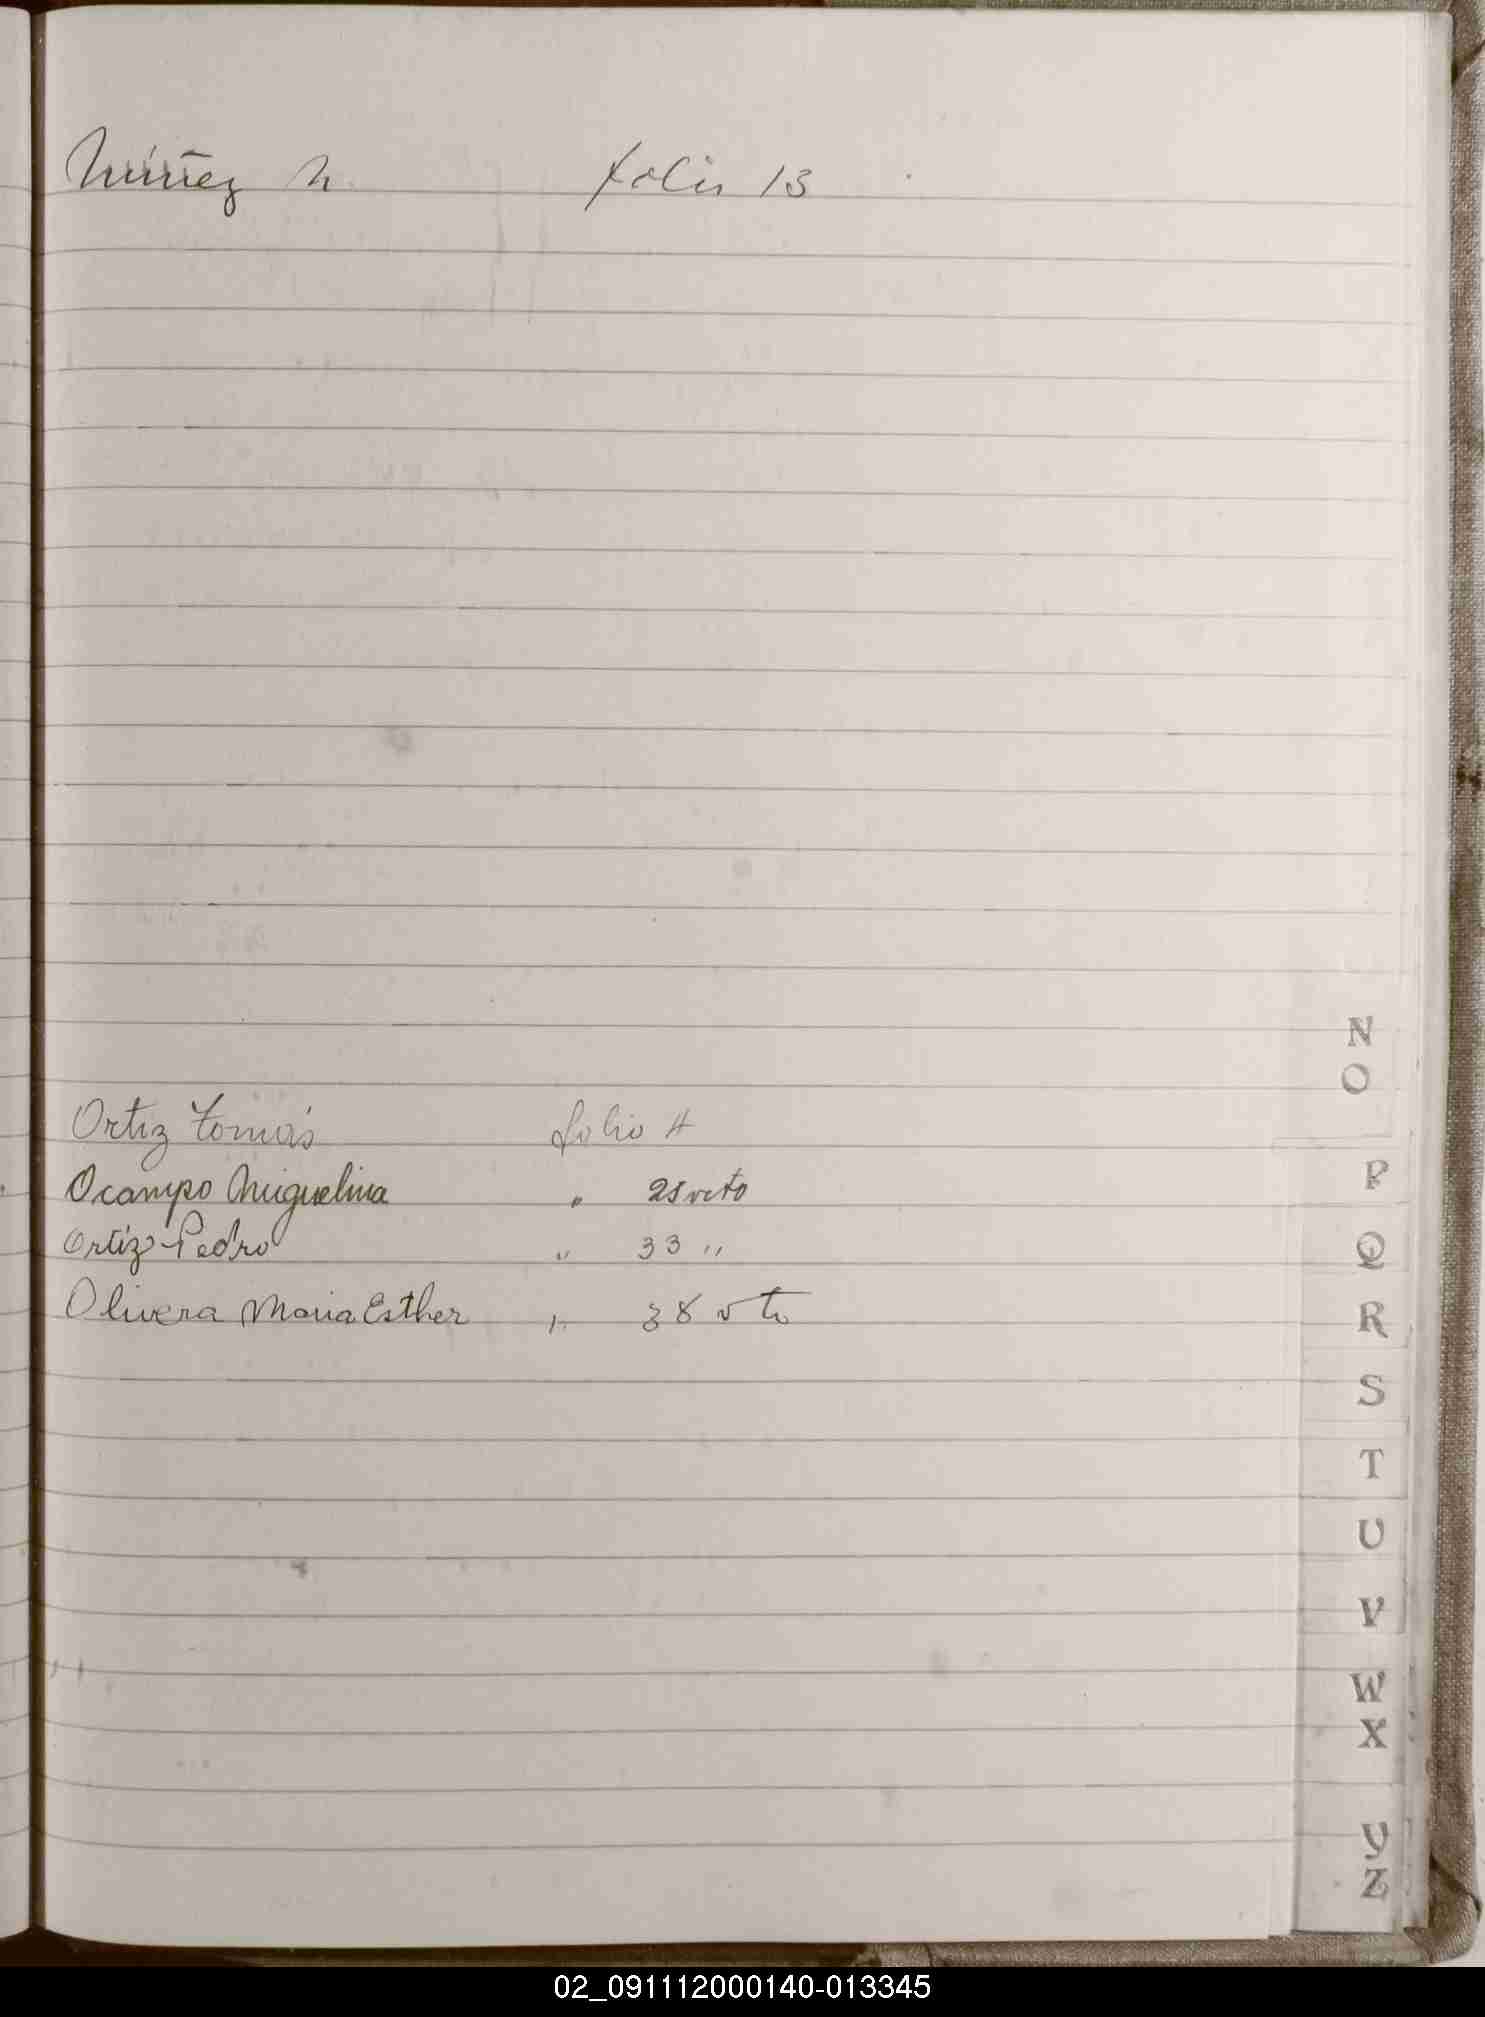 Núñez N. folio 13
Ortiz Tomás folio 4
Ocampo Miguelina " 25 vto
Ortiz Pedro " 33 "
Olivera Maria Esther " 38 vto
N
O
P
Q
R
S
T
U
V
W
X
Y
Z
02_091112000140-013345